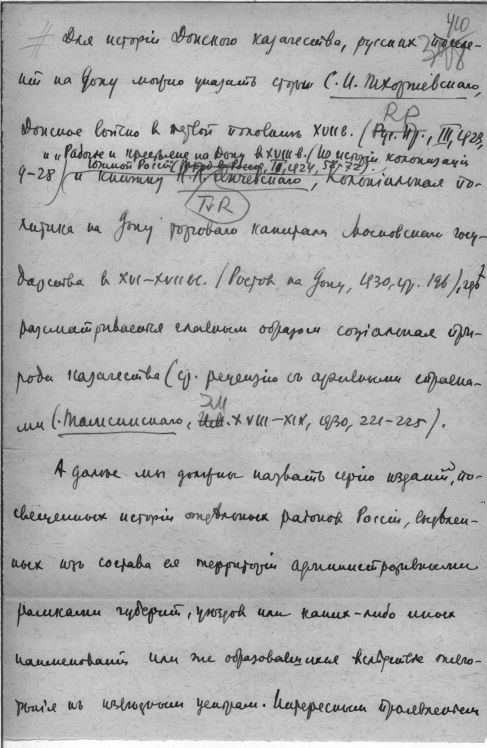 410
Для исторіи Донского казачества, русских поселе-
ній на Дону можно указать статьи С. И. Тхоржевскаго,
Донское войско в первой половинѣ XVIII в. (Рус. Пр., III, 1923,
и "Рабочіе и пришлые на Дону в XVIII в. (Из исторіи колонизаціи
Южной Россіи) (Труд в Россіи, III, 1924, 58-72).
9-28) и книжку Н. Л. Янчевскаго, Колоніальная по-
литика на Дону торговаго капитала Московскаго госу-
дарства в XVI-XVII вв. (Ростов на Дону, 1930, стр. 196), гдѣ
разсматривается главным образом соціальная при-
рода казачества (ср. рецензію съ архивными справка-
ми С. Томсинскаго, ЭМ XVIII-XIX, 1930, 221-225).
А дальше мы должны назвать серію изданій, по-
священных исторіи отдѣльных районов Россіи, выдѣлен-
ных изъ состава ея территоріи административными
рамками губерній, уѣздов или каких-либо иных
наименованій или же образовавшихся вслѣдствіе тяго-
тѣнія къ извѣстным центрам. Интересным проявленіем